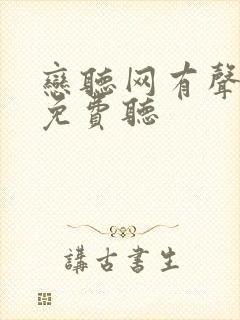 戀聽网有聲
免費聽
講古書生